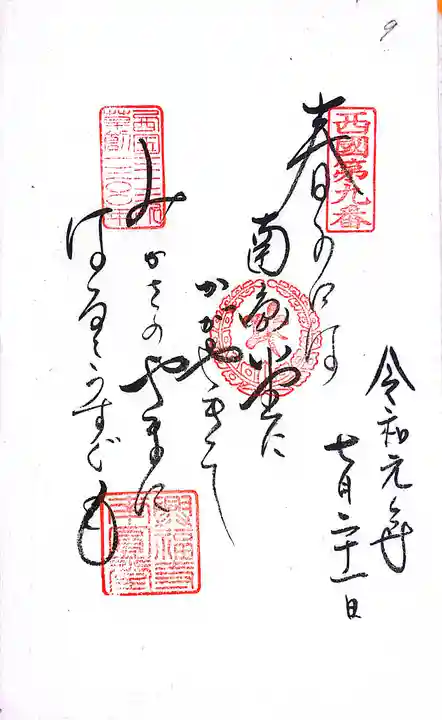 9
西國第九番
令和元年
七月二十一日
春の日は
南圓堂に
かがやきて
みかさのやまに
はるるうすぐも
西国三十三所
草創一三〇〇年
興福寺